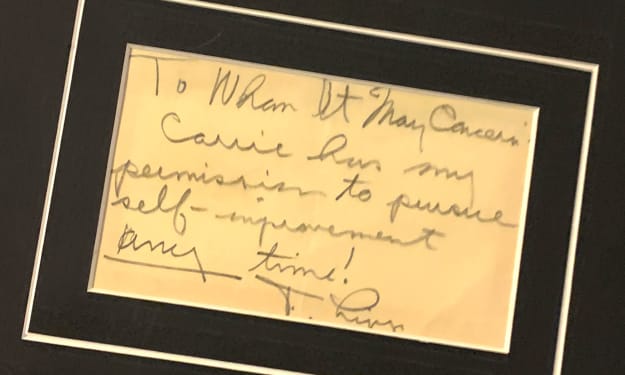 To Whom It May Concern:
Carrie has my
permission to pursue
self-improvement
any time!
T.